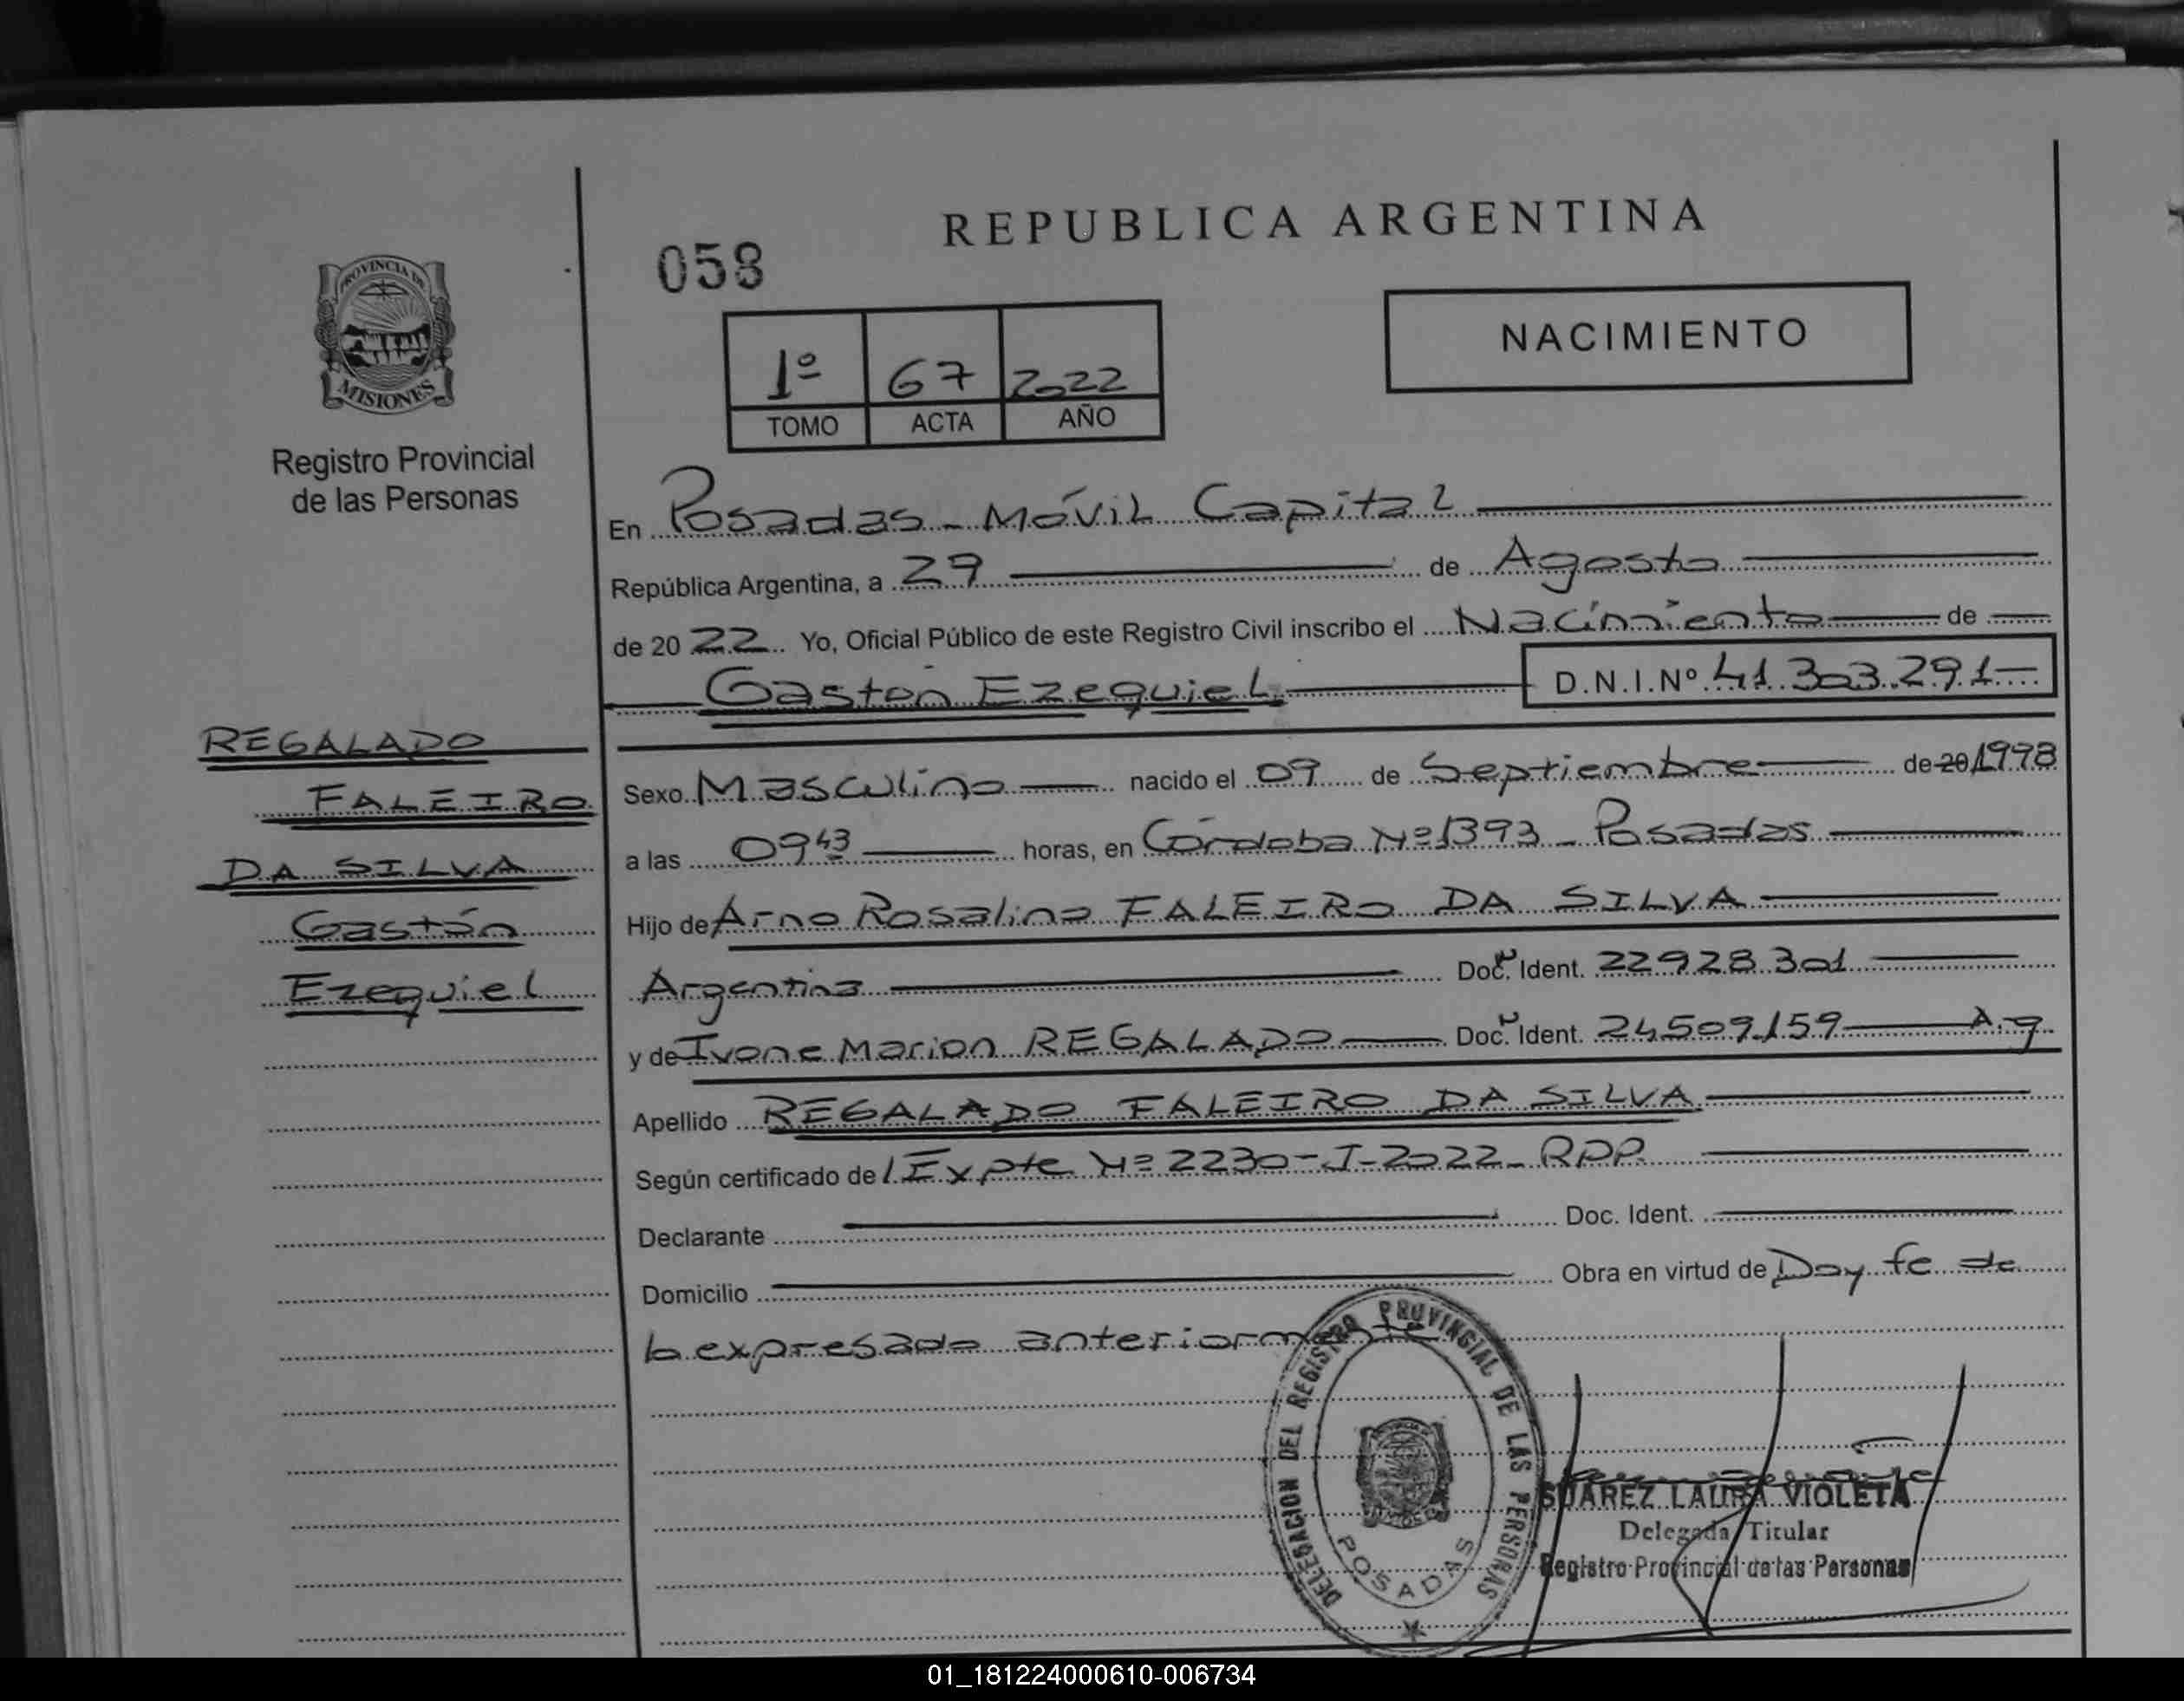 REPUBLICA ARGENTINA
058
NACIMIENTO
1º 67 2022
TOMO ACTA AÑO
PROVINCIA DE
MISIONES
Registro Provincial
de las Personas
En Posadas - Móvil Capital
República Argentina, a 29 de Agosto
de 20 22 Yo, Oficial Público de este Registro Civil inscribo el Nacimiento de
Gastón Ezequiel D.N.I.Nº 41.303.291
REGALADO
FALEIRO
DA SILVA
Gastón
Ezequiel
Sexo Masculino nacido el 09 de Septiembre de 20 1998
a las 09 43 horas, en Córdoba Nº 1393 - Posadas
Hijo de Arno Rosalino FALEIRO DA SILVA
Argentina Doc. Ident. 22928301
y de Ivone Marion REGALADO Doc. Ident. 24509159 Arg
Apellido REGALADO FALEIRO DA SILVA
Según certificado de / Expte Nº 2230-I-2022 - RPP
Declarante Doc. Ident.
Domicilio Obra en virtud de Doy fe de
lo expresado anteriormente
DELEGACION DEL REGISTRO PROVINCIAL DE LAS PERSONAS
POSADAS
SUAREZ LAURA VIOLETA
Delegada Titular
Registro Provincial de las Personas
01_181224000610-006734